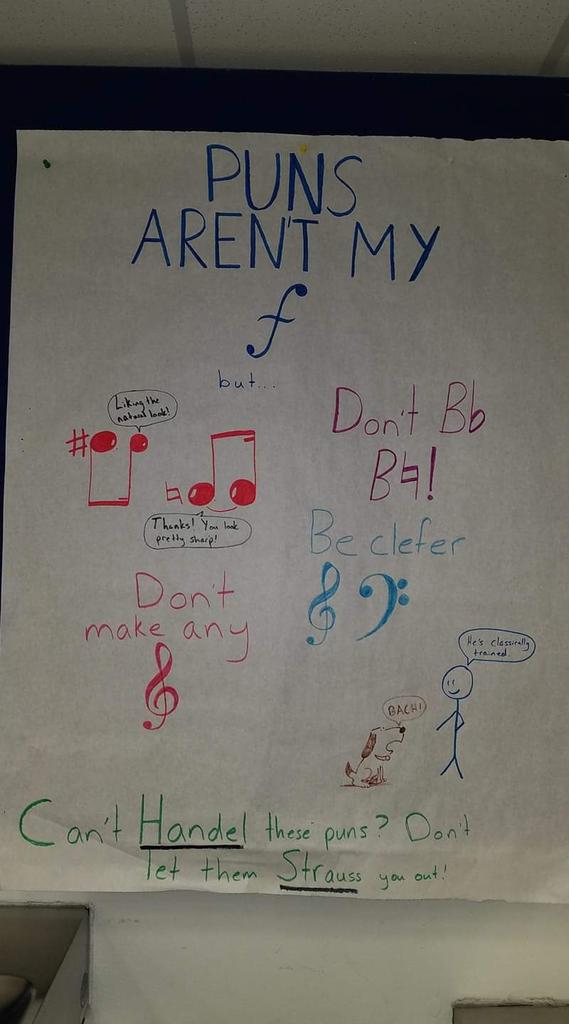 PUNS
AREN'T MY
f
but...
Liking the
natural look!
♯
♮
Thanks! You look
pretty sharp!
Don't B♭
B♮!
Be clefer
Don't
make any
He's classically
trained.
BACH!
Can't Handel these puns? Don't
let them Strauss you out!